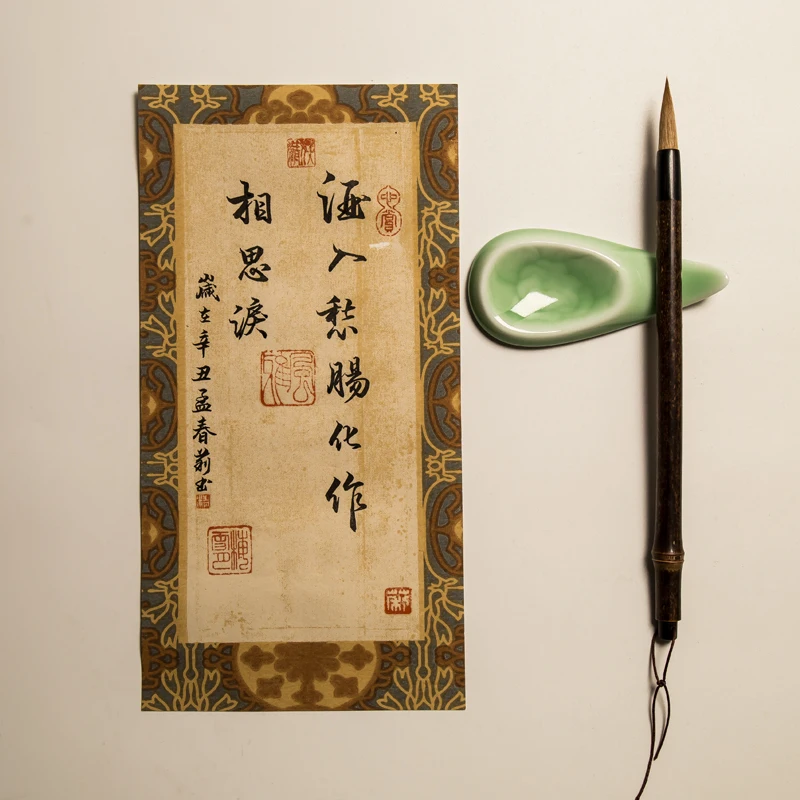 酒入愁腸化作
相思淚
歲在辛丑孟春莉书
心賞